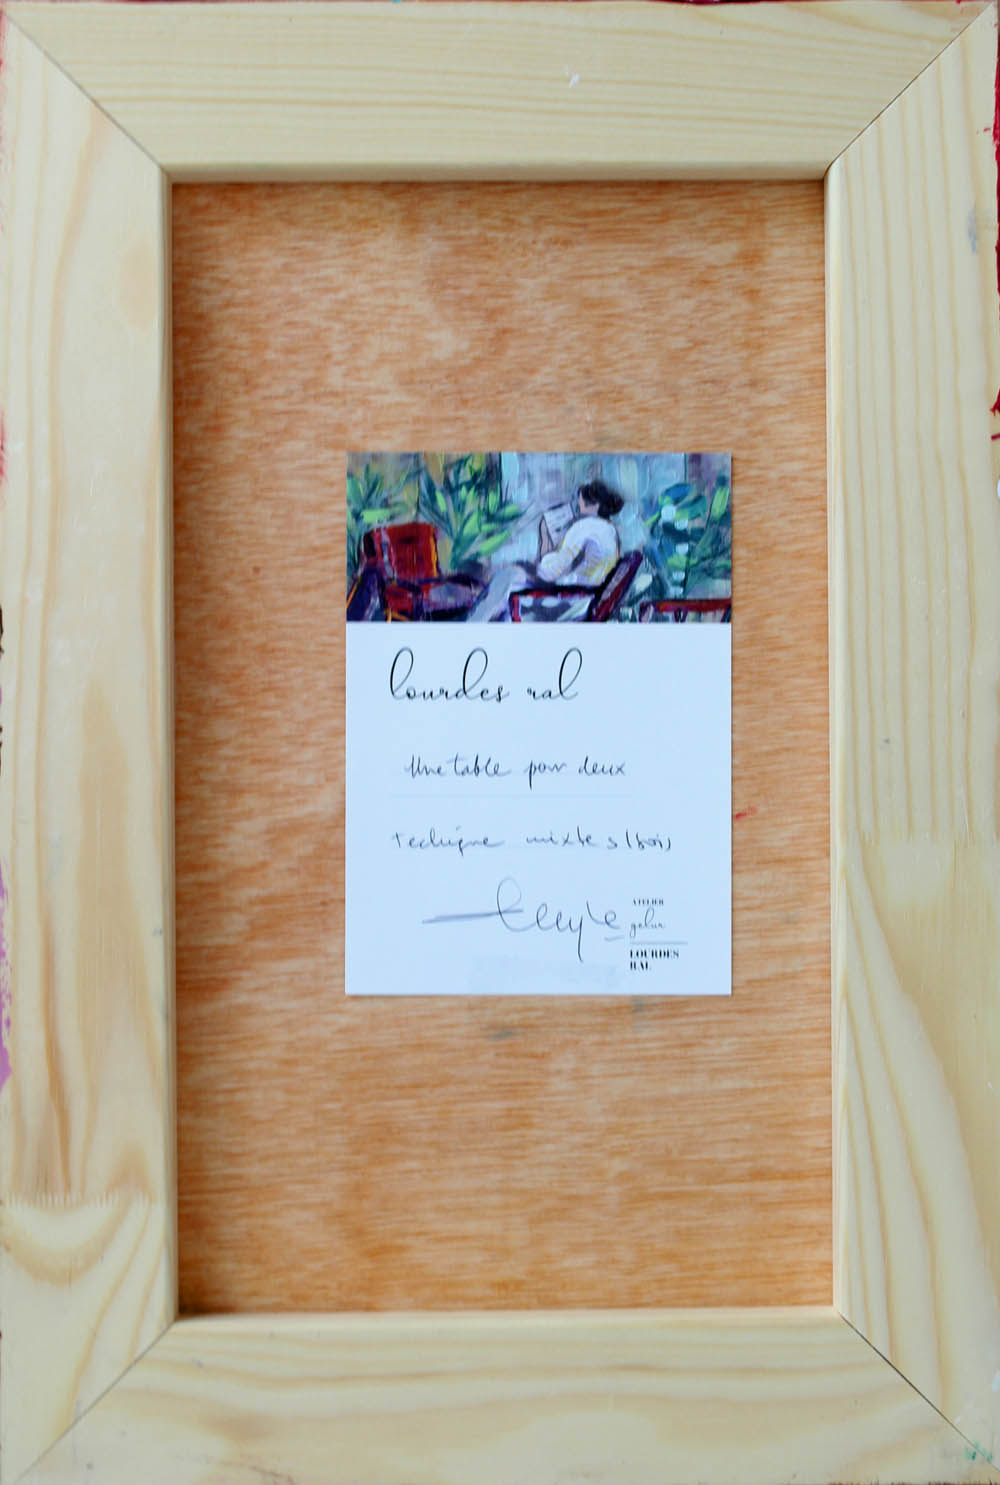 lourdes ral
Une table pour deux
technique mixte s/bois
ATELIER
gelur
LOURDES
RAL